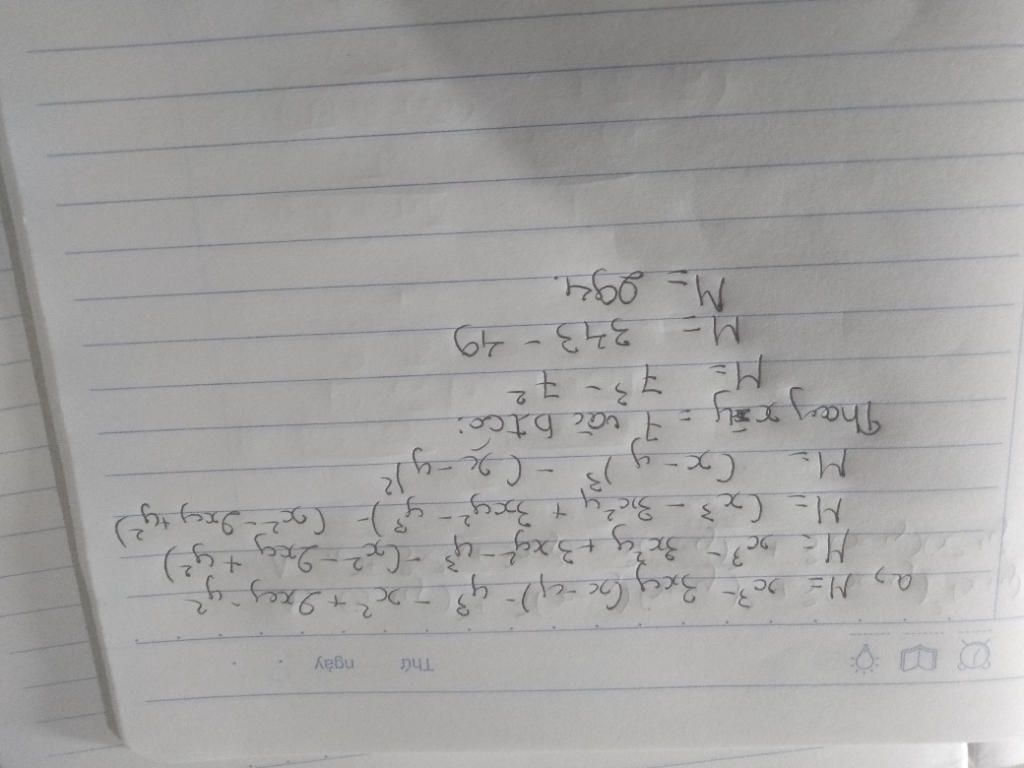 Thứ ngày
a, M = x³ - 3xy(x-y) - y³ - x² + 2xy - y²
M = x³ - 3x²y + 3xy² - y³ - (x² - 2xy + y²)
M = (x³ - 3x²y + 3xy² - y³) - (x² - 2xy + y²)
M = (x-y)³ - (x-y)²
Thay x-y = 7 vào btcó:
M = 7³ - 7²
M = 343 - 49
M = 294.